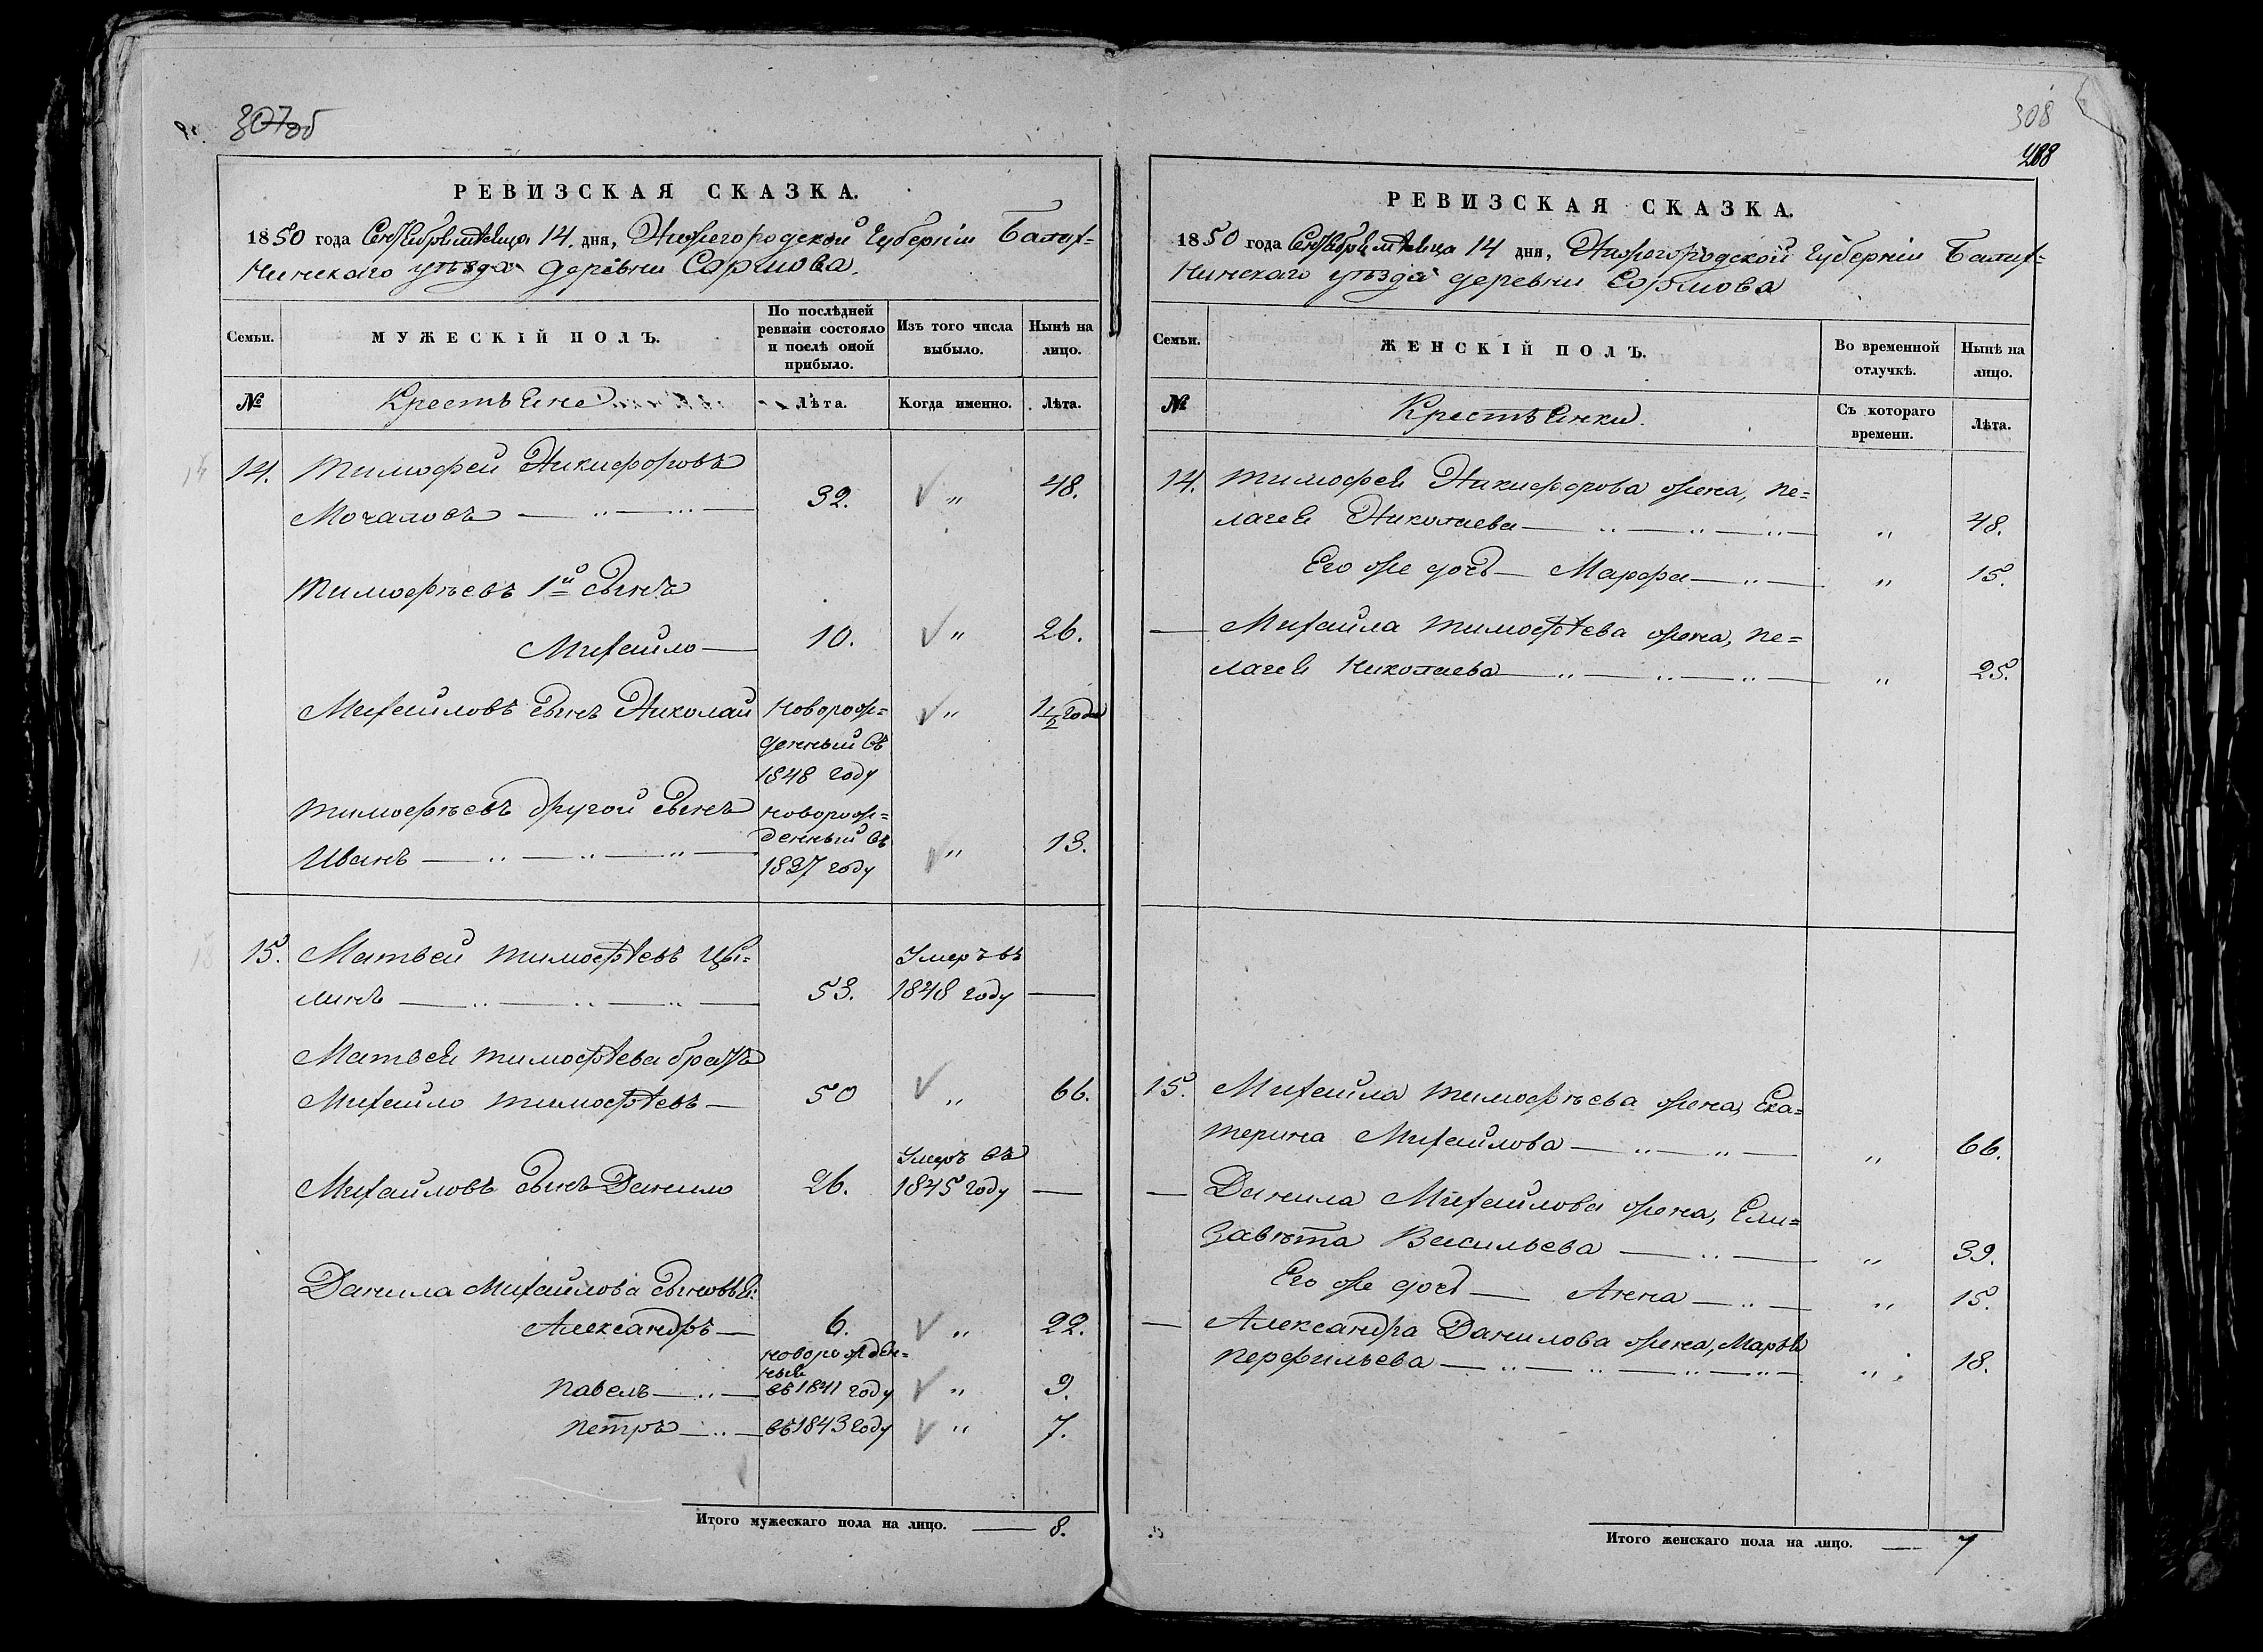 307об
РЕВИЗСКАЯ СКАЗКА.
1850 года Сентября мѣсяца 14. дня, Нижегородской Губерніи Балах-
нинскаго уѣзда деревни Сормова.
Семьи.
МУЖЕСКІЙ ПОЛЪ.
По послѣдней ревизіи состояло и послѣ оной прибыло.
Изъ того числа выбыло.
Нынѣ на лицо.
№
Крестьяне
Лѣта.
Когда именно.
Лѣта.
14. Тимофей Никифоровъ
Мочаловъ — „ — „ — 32. „ 48.
Тимофѣевъ 1й сынъ
Михайло — 10. „ 26.
Михайловъ сынъ Николай новорож= „ 1½ года
денный въ
1848 году
Тимофѣевъ другой сынъ новорож=
денный въ
Иванъ — „ — „ — „ — 1837 году „ 13.
15. Матвей Тимофѣевъ Цы= Умеръ въ
линъ — „ — „ — „ — 53. 1848 году —
Матвея Тимофѣева братъ
Михайло Тимофѣевъ — 50 „ 66.
Умеръ въ
Михайловъ сынъ Данило 26. 1845 году —
Данила Михайлова сыновья:
Александръ — 6. „ 22.
новорожден=
ные
Павелъ — „ — въ 1841 году „ 9.
Петръ — „ — въ 1843 году „ 7.
Итого мужескаго пола на лицо. — 8.
308
288
РЕВИЗСКАЯ СКАЗКА.
1850 года Сентября мѣсяца 14 дня, Нижегородской Губерніи Балах=
нинскаго уѣзда деревни Сормова
Семьи.
ЖЕНСКІЙ ПОЛЪ.
Во временной отлучкѣ.
Нынѣ на лицо.
№
Крестьянки.
Съ котораго времени.
Лѣта.
14. Тимофея Никифорова жена, Пе=
лагея Николаева — „ — „ — „ — „ 48.
Его же дочь — Марфа — „ — „ 15.
— Михайла Тимофѣева жена, Пе=
лагея Николаева — „ — „ — „ — „ 25.
15. Михайла Тимофѣева жена, Ека=
терина Михайлова — „ — „ — „ 66.
— Данила Михайлова жена, Ели=
завѣта Васильева — „ — „ 39.
Его же дочь — Анна — „ — „ 15.
— Александра Данилова жена, Марья
Перфильева — „ — „ — „ — „ — „ 18.
Итого женскаго пола на лицо. — 7